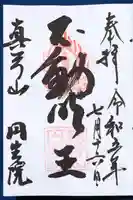 奉拝 令和五年
七月十六日
不動明王
真弓山 円生院